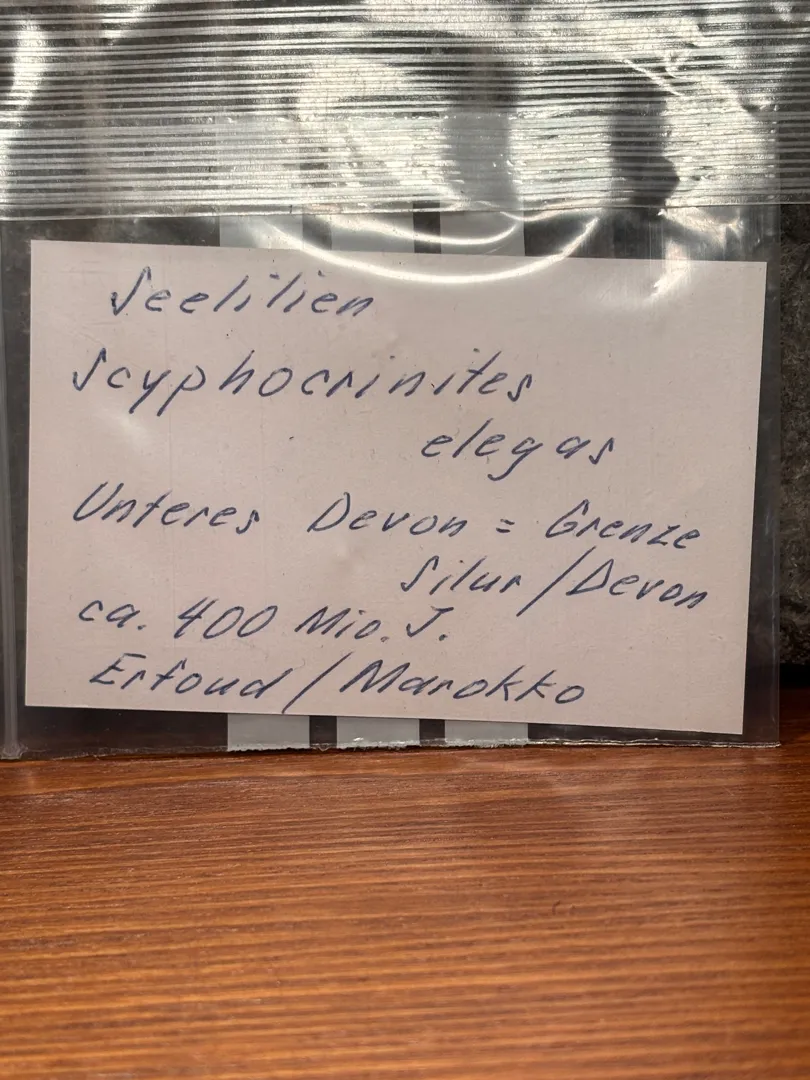 Seelilien
Scyphocrinites
elegas
Unteres Devon = Grenze
Silur/Devon
ca. 400 Mio. J.
Erfoud / Marokko